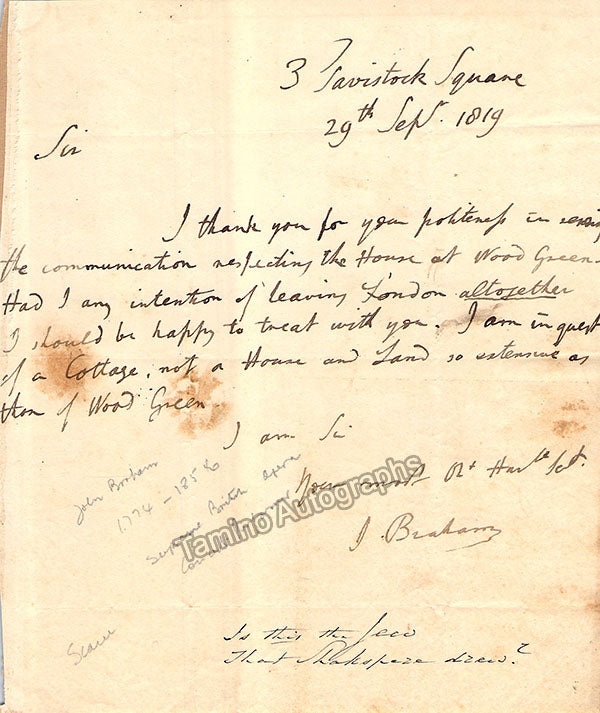 3 Tavistock Square
29th Sepr. 1819
Sir
I thank you for your politeness in
the communication respecting the House at Wood Green.
Had I any intention of leaving London altogether
I should be happy to treat with you. I am in quest
of a Cottage, not a House and Land so extensive as
that of Wood Green
I am Sir
Your most Obt Huble Sert.
J. Braham
John Braham
1774 - 1856
Supreme British Opera
Tamino Autographs
Scarce
Is this the Jew
That Shakspere drew?